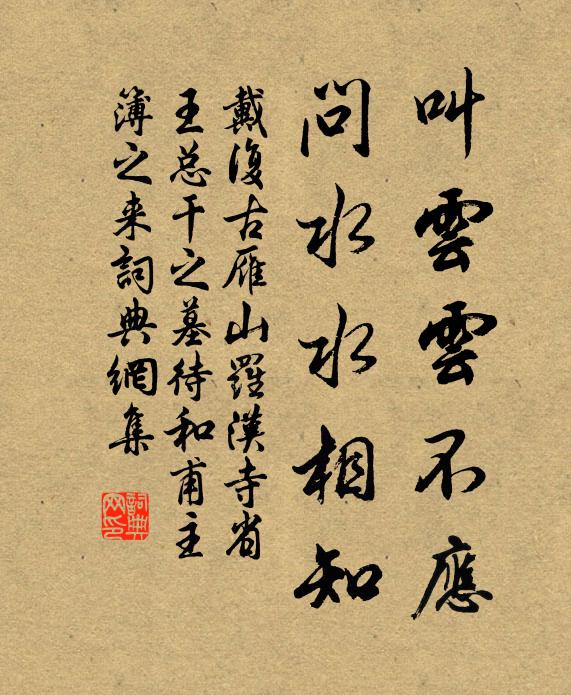 叫雲雲不應
問水水相知
戴復古雁山羅漢寺省
王总干之墓待和甫主
簿之来詞典網集
詞典网印